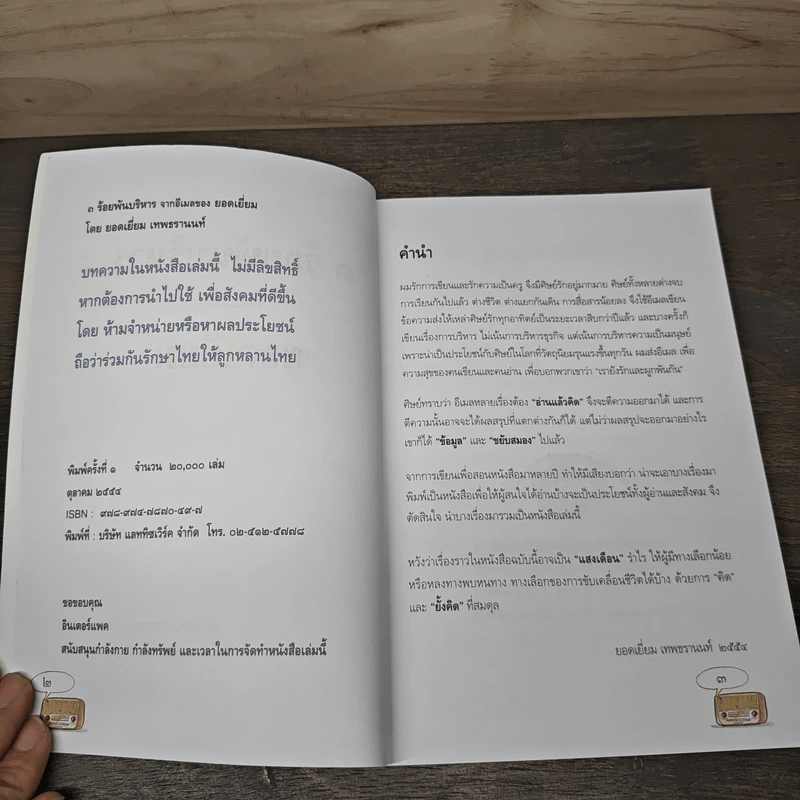 ๓ ร้อยพันบริหาร จากอีเมลของ ยอดเยี่ยม
โดย ยอดเยี่ยม เทพธรานนท์
บทความในหนังสือเล่มนี้ ไม่มีลิขสิทธิ์
หากต้องการนำไปใช้ เพื่อสังคมที่ดีขึ้น
โดย ห้ามจำหน่ายหรือหาผลประโยชน์
ถือว่าร่วมกันรักษาไทยให้ลูกหลานไทย
พิมพ์ครั้งที่ ๑ จำนวน ๒๐,๐๐๐ เล่ม
ตุลาคม ๒๕๕๔
ISBN : ๙๗๘-๙๗๔-๗๘๗๐-๔๙-๗
พิมพ์ที่ : บริษัท แลททิซเวิร์ค จำกัด โทร. ๐๒-๕๑๒-๕๗๗๘
ขอขอบคุณ
อินเตอร์แพค
สนับสนุนกำลังกาย กำลังทรัพย์ และเวลาในการจัดทำหนังสือเล่มนี้
๒
คำนำ
ผมรักการเขียนและรักความเป็นครู จึงมีศิษย์รักอยู่มากมาย ศิษย์ทั้งหลายต่างจบ
การเรียนกันไปแล้ว ต่างชีวิต ต่างแยกกันเดิน การสื่อสารน้อยลง จึงใช้อีเมลเขียน
ข้อความส่งให้เหล่าศิษย์รักทุกอาทิตย์เป็นระยะเวลาสิบกว่าปีแล้ว และบางครั้งก็
เขียนเรื่องการบริหาร ไม่เน้นการบริหารธุรกิจ แต่เน้นการบริหารความเป็นมนุษย์
เพราะน่าเป็นประโยชน์กับศิษย์ในโลกที่วัตถุนิยมรุนแรงขึ้นทุกวัน ผมส่งอีเมล เพื่อ
ความสุขของคนเขียนและคนอ่าน เพื่อบอกพวกเขาว่า "เรายังรักและผูกพันกัน"
ศิษย์ทราบว่า อีเมลหลายเรื่องต้อง "อ่านแล้วคิด" จึงจะตีความออกมาได้ และการ
ตีความนั้นอาจจะได้ผลสรุปที่แตกต่างกันก็ได้ แต่ไม่ว่าผลสรุปจะออกมาอย่างไร
เขาก็ได้ "ข้อมูล" และ "ขยับสมอง" ไปแล้ว
จากการเขียนเพื่อสอนหนังสือมาหลายปี ทำให้มีเสียงบอกว่า น่าจะเอาบางเรื่องมา
พิมพ์เป็นหนังสือเพื่อให้ผู้สนใจได้อ่านบ้างจะเป็นประโยชน์ทั้งผู้อ่านและสังคม จึง
ตัดสินใจ นำบางเรื่องมารวมเป็นหนังสือเล่มนี้
หวังว่าเรื่องราวในหนังสือฉบับนี้อาจเป็น "แสงเดือน" รำไร ให้ผู้มีทางเลือกน้อย
หรือหลงทางพบหนทาง ทางเลือกของการขับเคลื่อนชีวิตได้บ้าง ด้วยการ "คิด"
และ "ยั้งคิด" ที่สมดุล
ยอดเยี่ยม เทพธรานนท์ ๒๕๕๔
๓